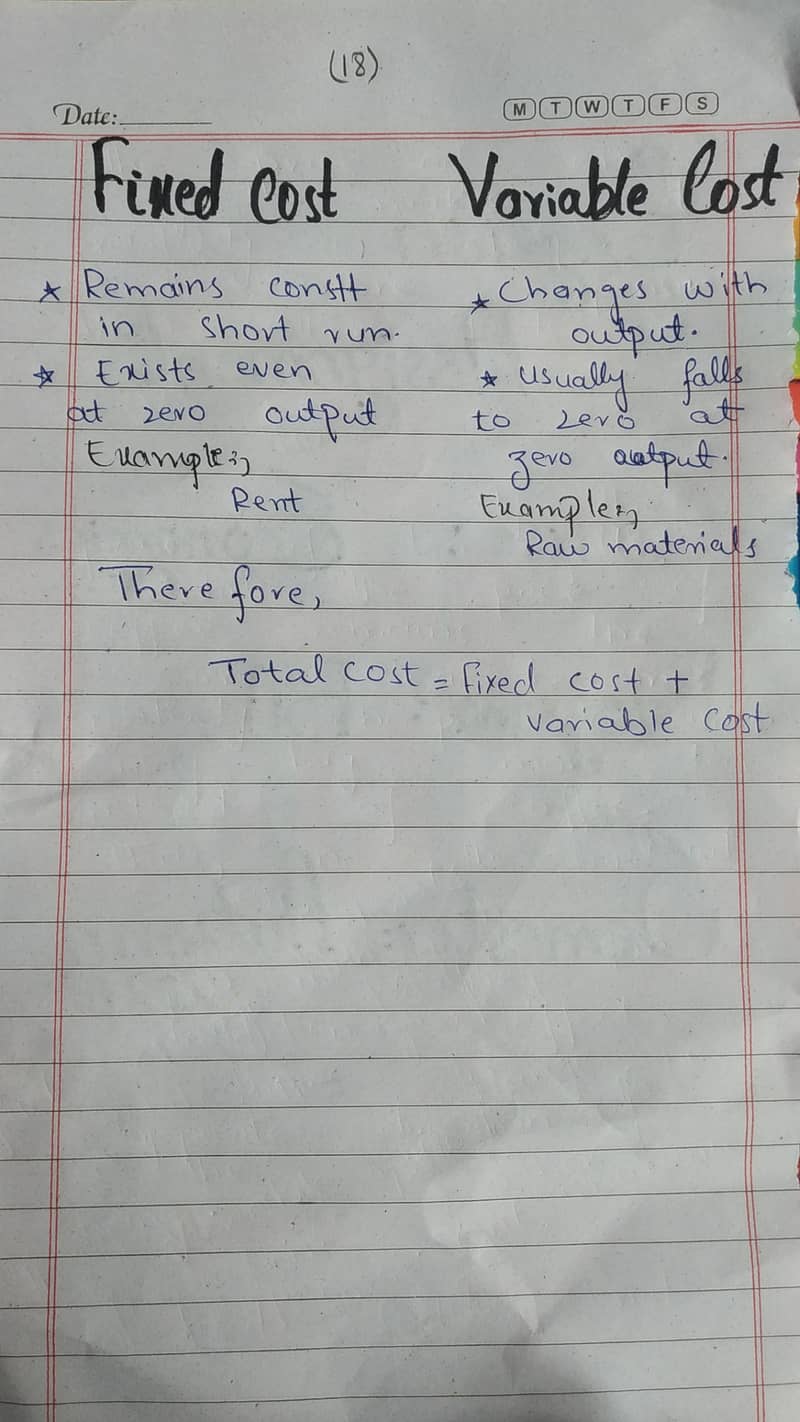 (18)
Date:
M T W T F S
Fixed Cost
Variable Cost
★ Remains constt
in short run.
★ Exists even
at zero output
Example:,
Rent
★ Changes with
output.
★ usually falls
to zero at
zero output.
Example:,
Raw materials
Therefore,
Total cost = fixed cost +
variable cost